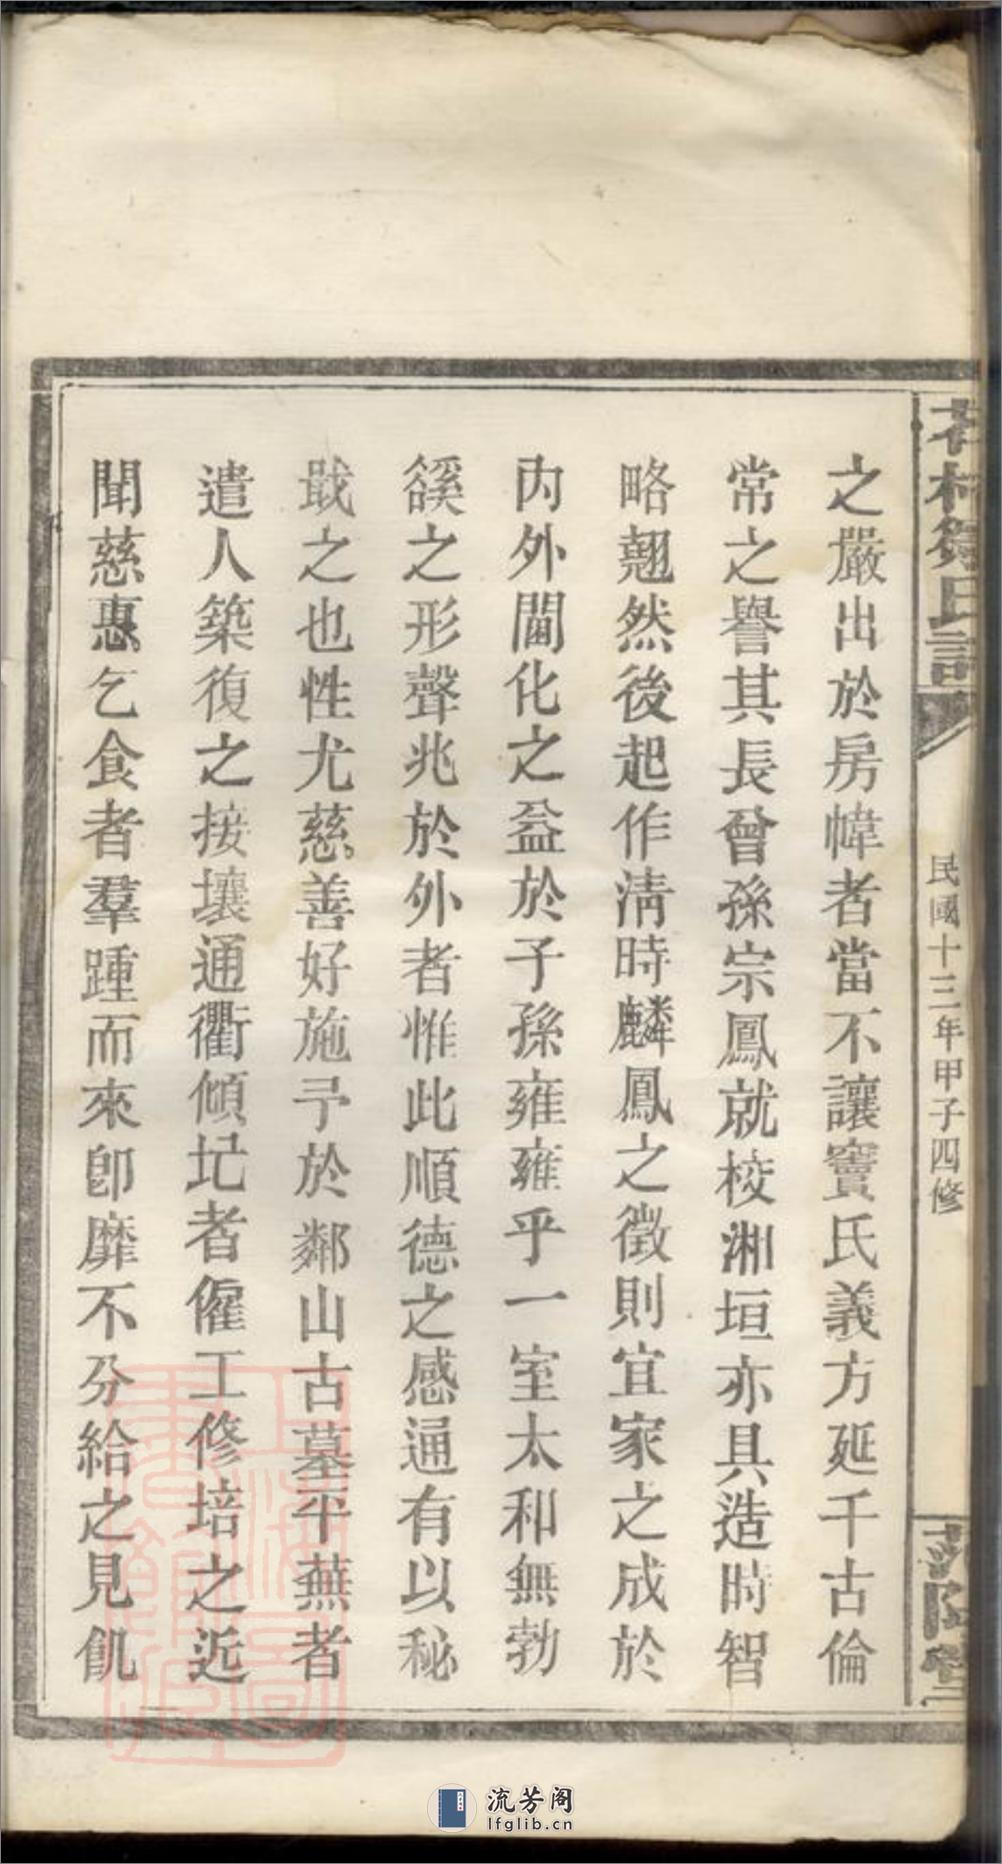 氏
民國十三年甲子四修
之嚴出於房幃者當不讓竇氏義方延千古倫
常之譽其長曾孫宗鳳就校湘垣亦具造時智
略翹然後起作淸時麟鳳之徵則宜家之成於
內外閫化之益於子孫雍雍乎一室太和無勃
谿之形聲兆於外者惟此順德之感通有以秘
戢之也性尤慈善好施予於鄰山古墓平蕪者
遣人築復之接壤通衢傾圮者僱工修培之近
聞慈惠乞食者羣踵而來卽靡不分給之見飢
上海圖書館藏
流芳阁
lfglib.cn